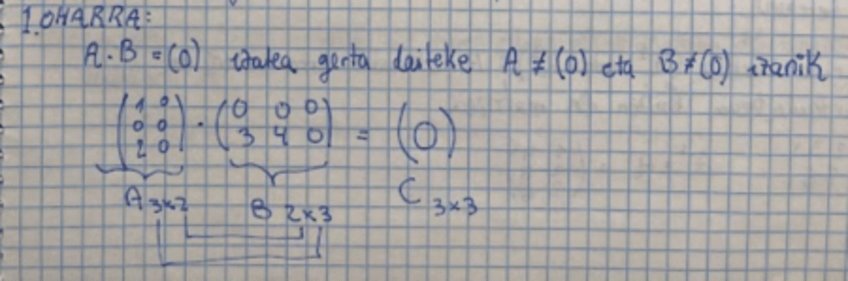 1. OHARRA:
A · B = (0) izatea gerta daiteke A ≠ (0) eta B ≠ (0) izanik
1 0 0 0 0
0 0 · 3 4 0 = (0)
2 0
A 3x2 B 2x3 C 3x3